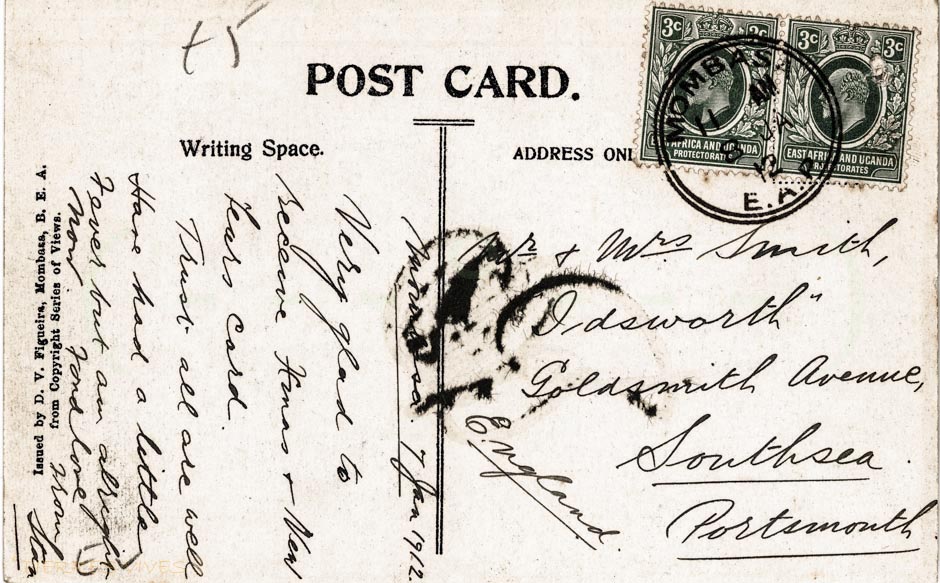 POST CARD.
Writing Space.
ADDRESS ONL
3c 3c
3c 3c
EAST AFRICA AND UGANDA
PROTECTORATES
EAST AFRICA AND UGANDA
PROTECTORATES
MOMBASA
11 AM
8 JA
12
E.A.P.
Mombasa. 7 Jan 1912.
Very glad to
receive Xmas & New
Years Card.
Trust all are well
Have had a little
Fever but am alright
now. Fond love
from Stan
Mr & Mrs Smith,
"Idsworth"
Goldsmith Avenue,
Southsea.
Portsmouth
England
Issued by D. V. Figueira, Mombasa, B. E. A.
from Copyright Series of Views.